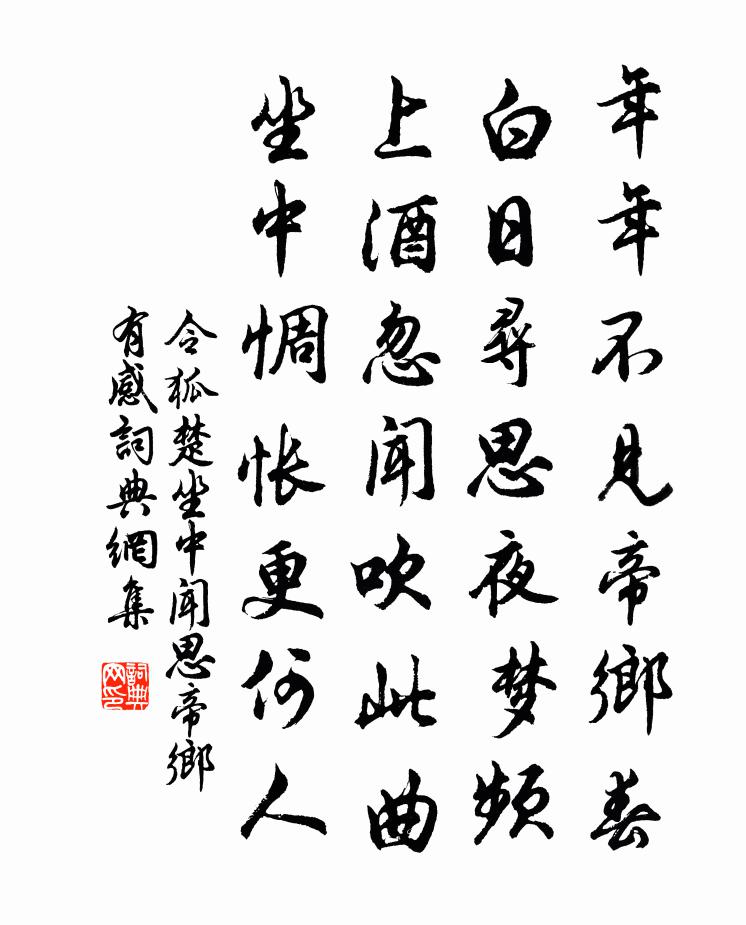 年年不見帝鄉春
白日尋思夜梦頻
上酒忽聞吹此曲
坐中惆怅更何人
令狐楚坐中聞思帝鄉
有感詞典網集
詞典
网印